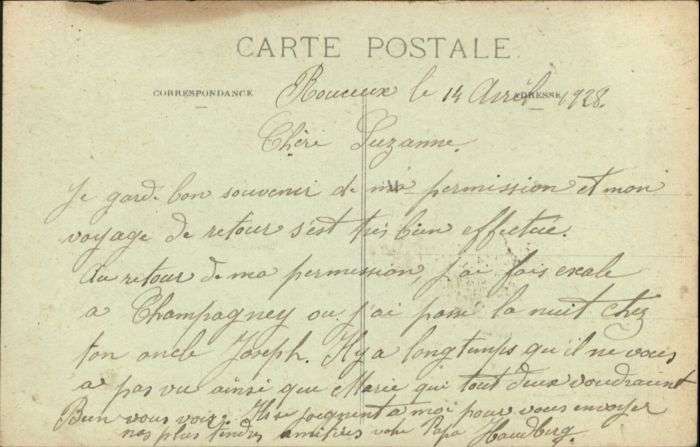 CARTE POSTALE
CORRESPONDANCE
ADRESSE
Rouceux le 14 Avril 1928.
Chère Suzanne.
Je garde bon souvenir de ma permission et mon
voyage de retour s'est très bien effectue.
Au retour de ma permission, j'ai fais escale
a Champagney ou j'ai passé la nuit chez
ton oncle Joseph. Il y a longtemps qu'il ne vous
a pas vu ainsi que Marie qui tout deux voudraient
Bien vous voir. Ils se joignent a moi pour vous envoyer
nos plus tendres amitiés votre Papa